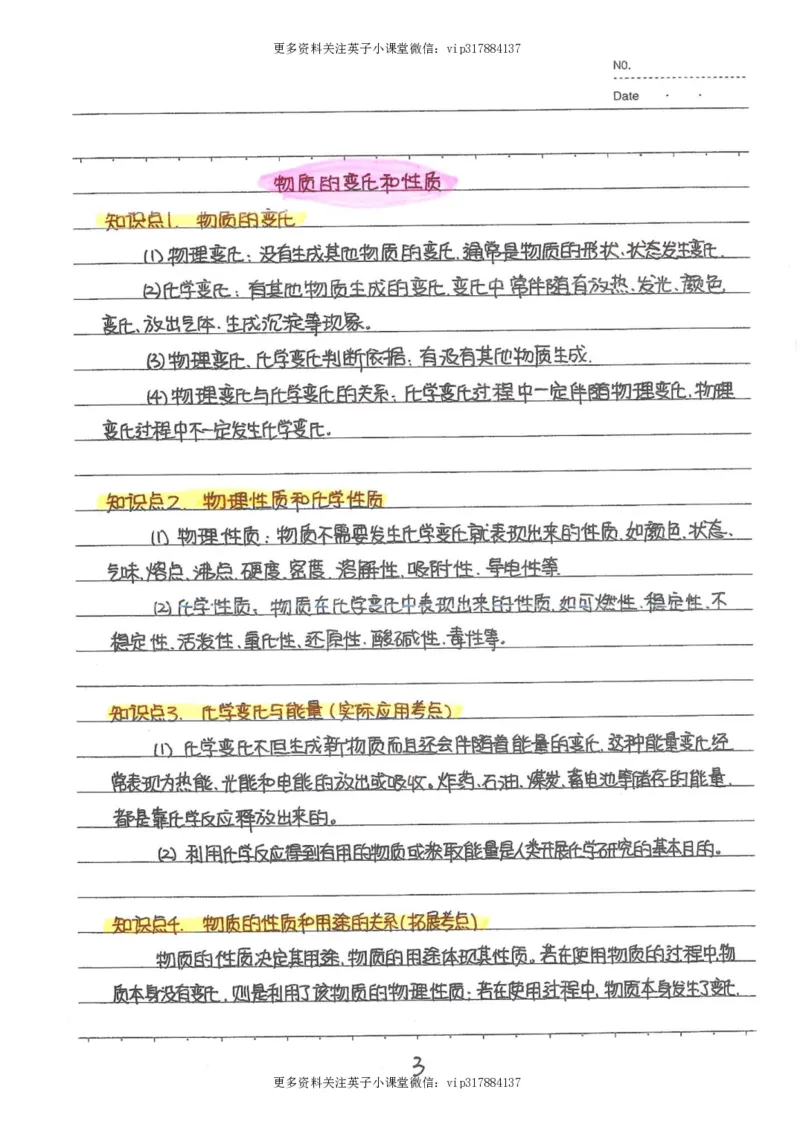 更多资料关注英子小课堂微信：vip317884137
N0.
Date · ·
物质的变化和性质
知识点1. 物质的变化
(1)物理变化：没有生成其他物质的变化,通常是物质的形状、状态发生变化.
(2)化学变化：有其他物质生成的变化,变化中常伴随有放热、发光、颜色
变化、放出气体.生成沉淀等现象。
(3)物理变化、化学变化判断依据：有没有其他物质生成.
(4)物理变化与化学变化的关系：化学变化过程中一定伴随物理变化,物理
变化过程中不一定发生化学变化.
知识点2. 物理性质和化学性质
(1) 物理性质：物质不需要发生化学变化就表现出来的性质,如颜色、状态、
气味,熔点、沸点.硬度、密度、溶解性,吸附性、导电性等.
(2)化学性质：物质在化学变化中表现出来的性质,如可燃性、稳定性、不
稳定性、活泼性、氧化性、还原性.酸碱性、毒性等。
知识点3. 化学变化与能量(实际应用考点)
(1) 化学变化不但生成新物质而且还会伴随着能量的变化,这种能量变化经
常表现为热能、光能和电能的放出或吸收。炸药、石油、煤炭、蓄电池等储存的能量,
都是靠化学反应释放出来的。
(2) 利用化学反应得到有用的物质或获取能量是人类开展化学研究的基本目的。
知识点4. 物质的性质和用途的关系(拓展考点)
物质的性质决定其用途,物质的用途体现其性质。若在使用物质的过程中,物
质本身没有变化,则是利用了该物质的物理性质；若在使用过程中,物质本身发生了变化,
3
更多资料关注英子小课堂微信：vip317884137